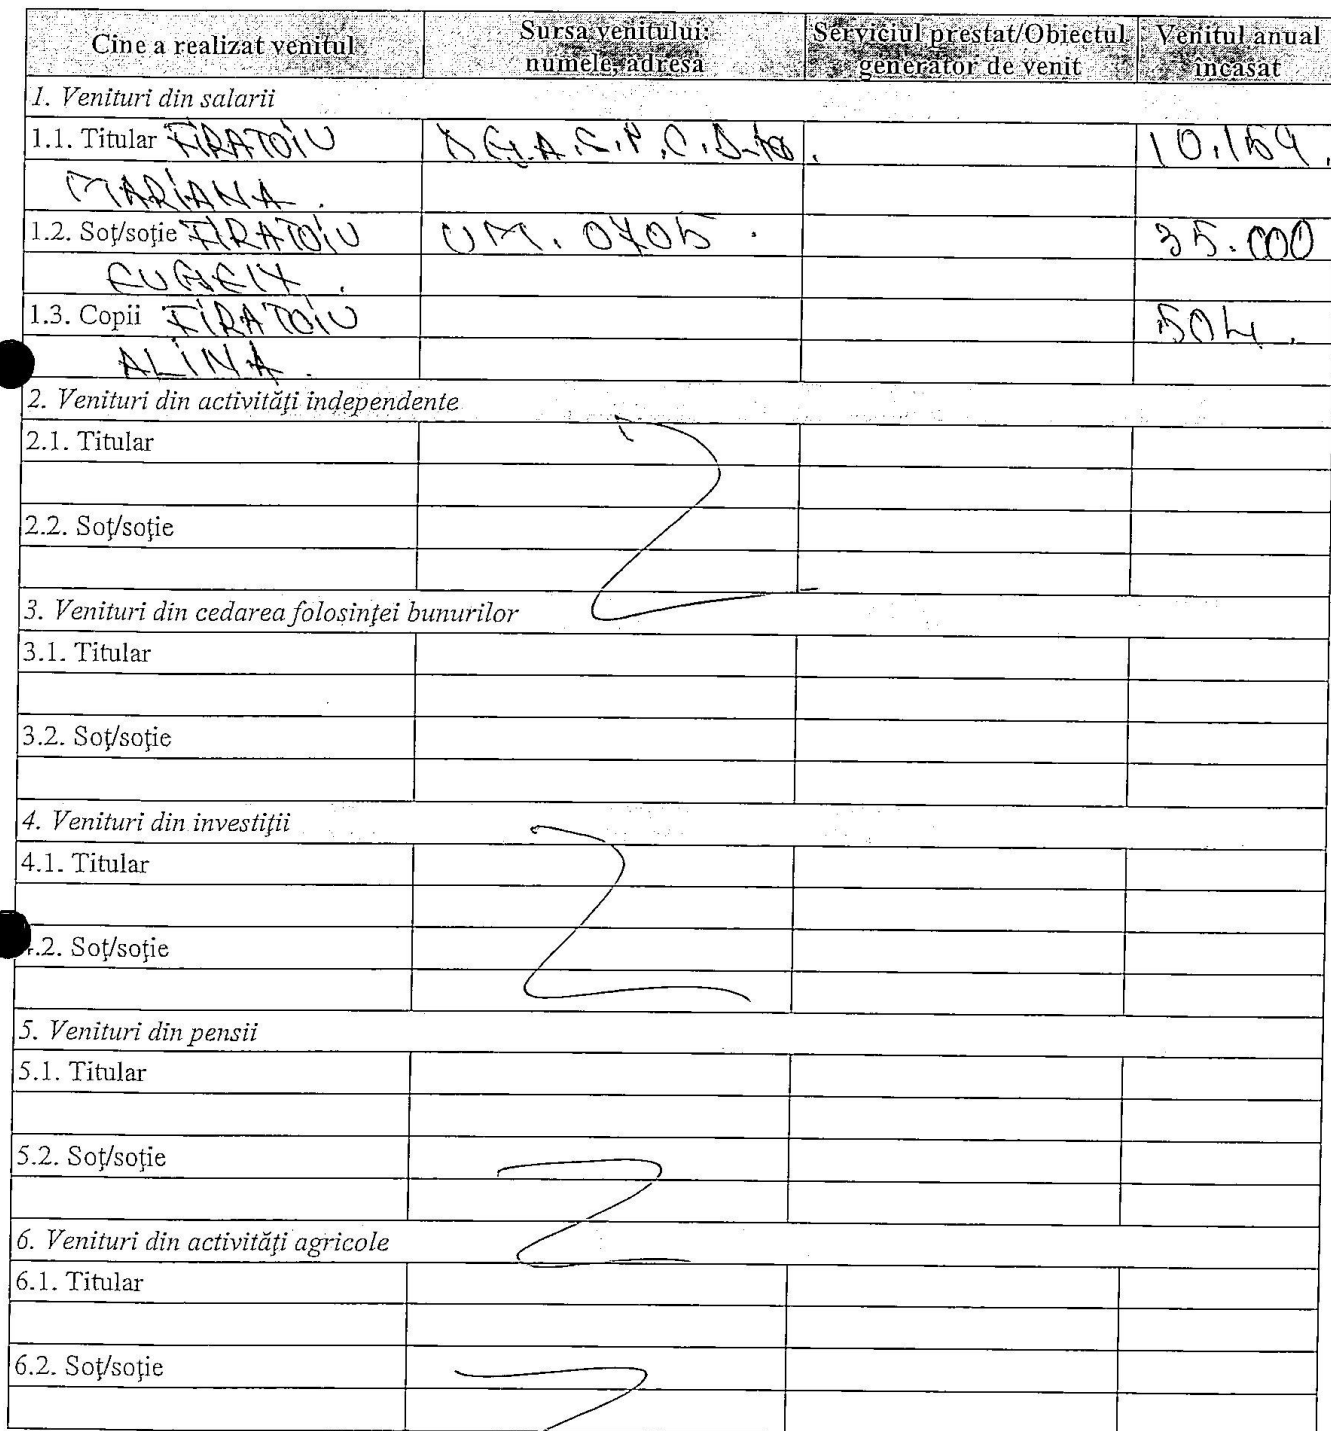 Cine a realizat venitul Sursa venitului: numele, adresa Serviciul prestat/Obiectul generator de venit Venitul anual încasat
1. Venituri din salarii
1.1. Titular FIRATOIU D.G.A.S.P.C. 10.164.
MARIANA.
1.2. Soţ/soţie FIRATOIU UM. 0705. 35.000
EUGEN.
1.3. Copii FIRATOIU 504.
ALINA.
2. Venituri din activităţi independente
2.1. Titular
2.2. Soţ/soţie
3. Venituri din cedarea folosinţei bunurilor
3.1. Titular
3.2. Soţ/soţie
4. Venituri din investiţii
4.1. Titular
4.2. Soţ/soţie
5. Venituri din pensii
5.1. Titular
5.2. Soţ/soţie
6. Venituri din activităţi agricole
6.1. Titular
6.2. Soţ/soţie